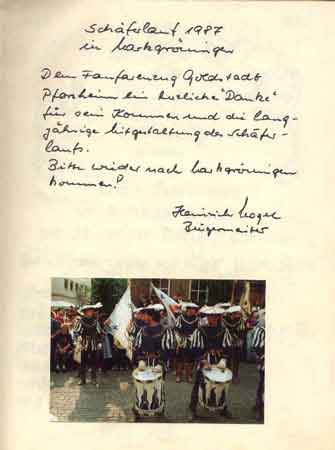 Schäferlauf 1987
in Markgröningen
Dem Fanfarenzug Goldstadt
Pforzheim ein herzliches "Danke"
für sein Kommen und die lang-
jährige Mitgestaltung des Schäfer-
laufs.
Bitte wieder nach Markgröningen
kommen!
Heinrich Vogel
Bürgermeister